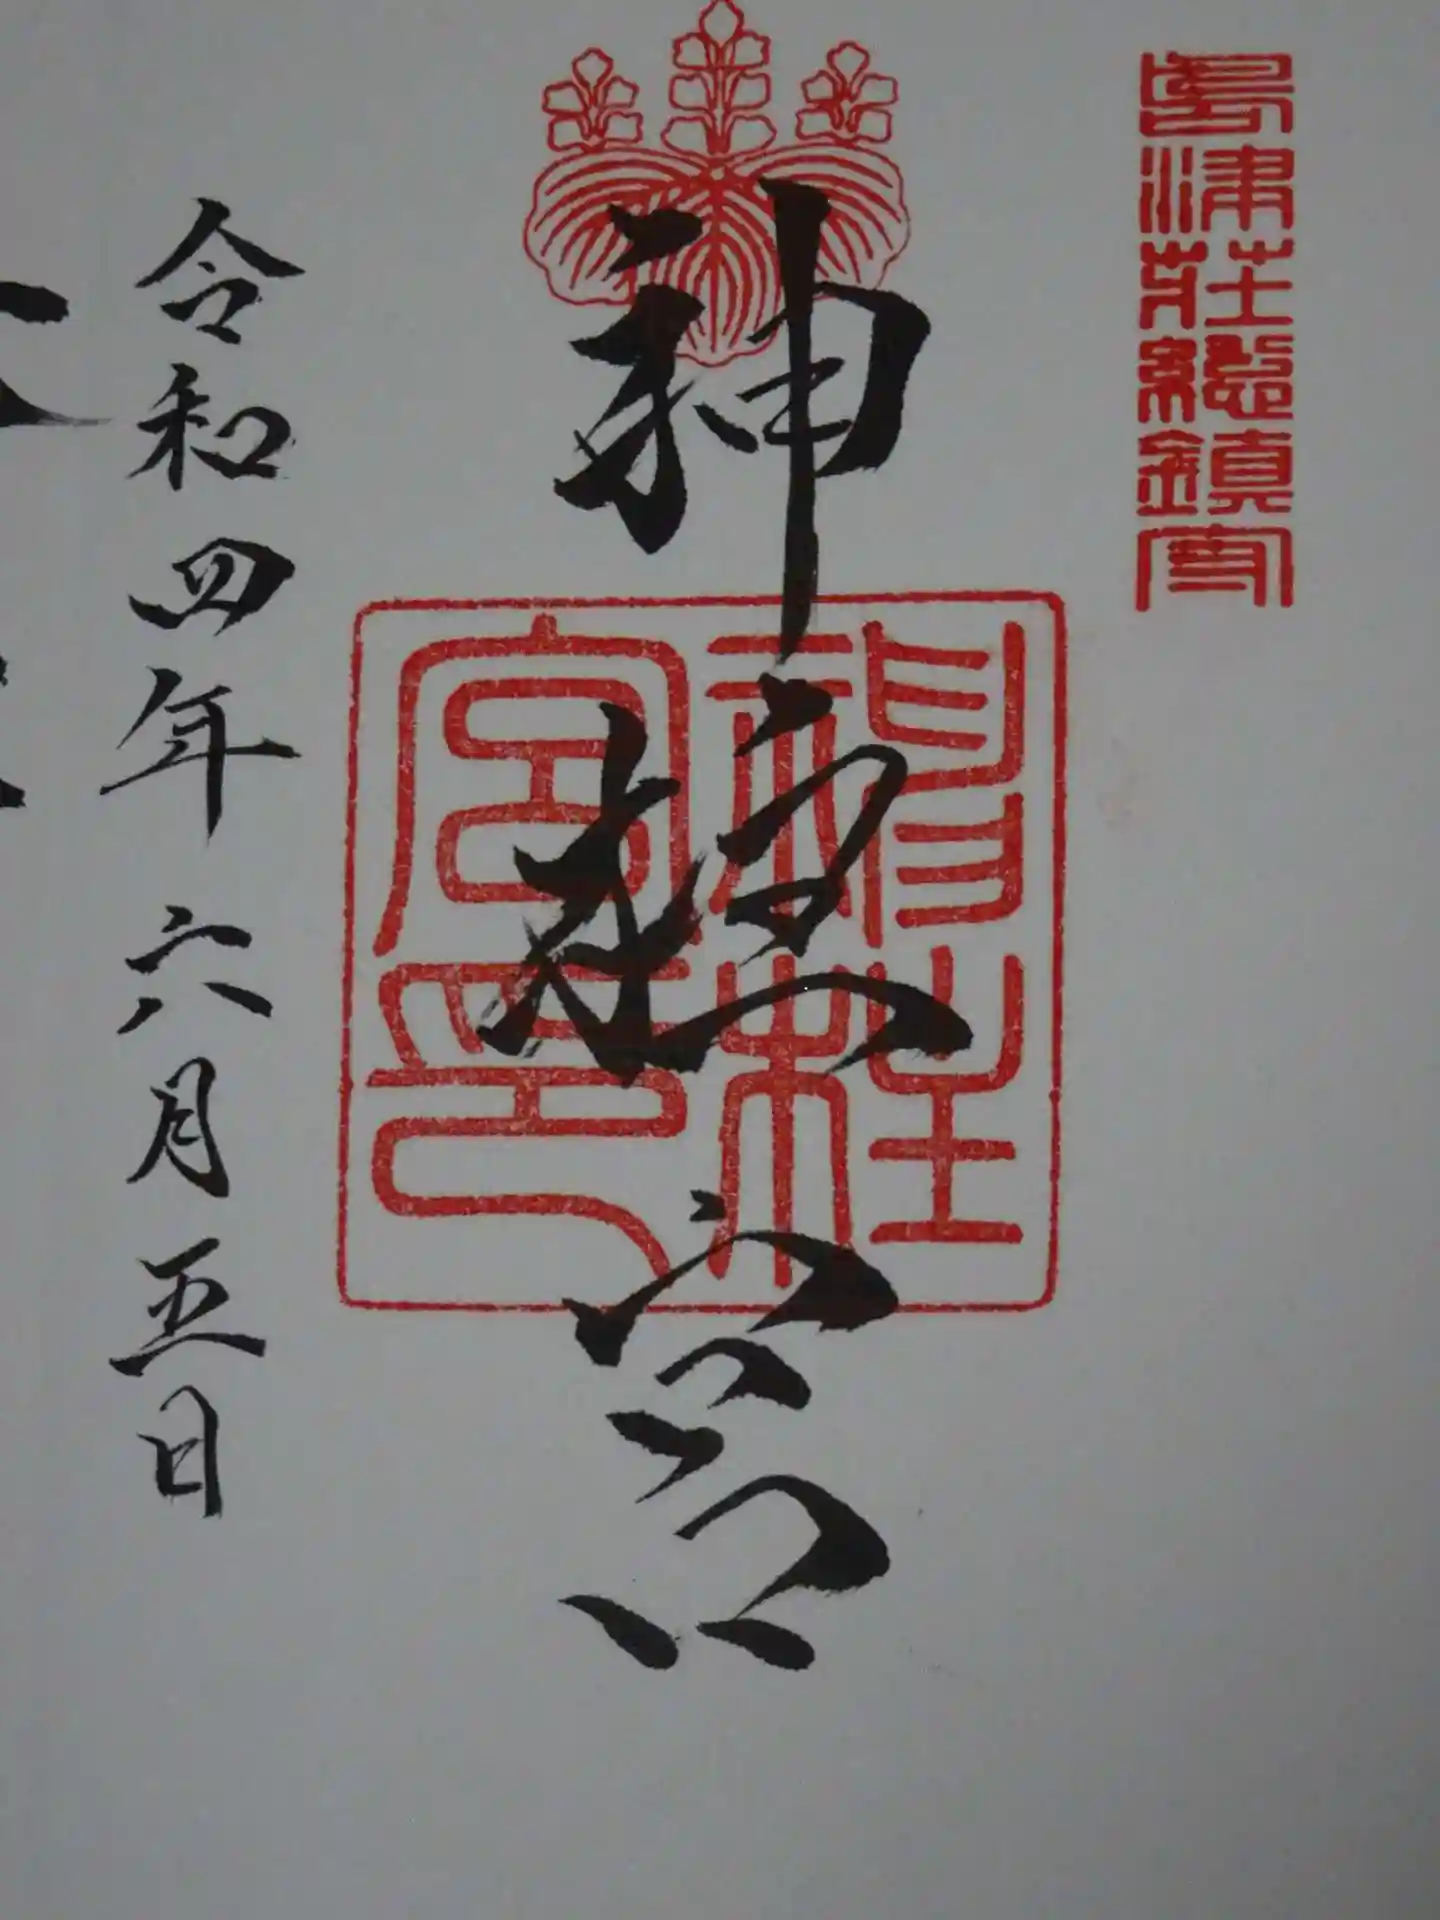 島津荘總鎮守
神柱宮
神柱宮印
令和四年六月五日